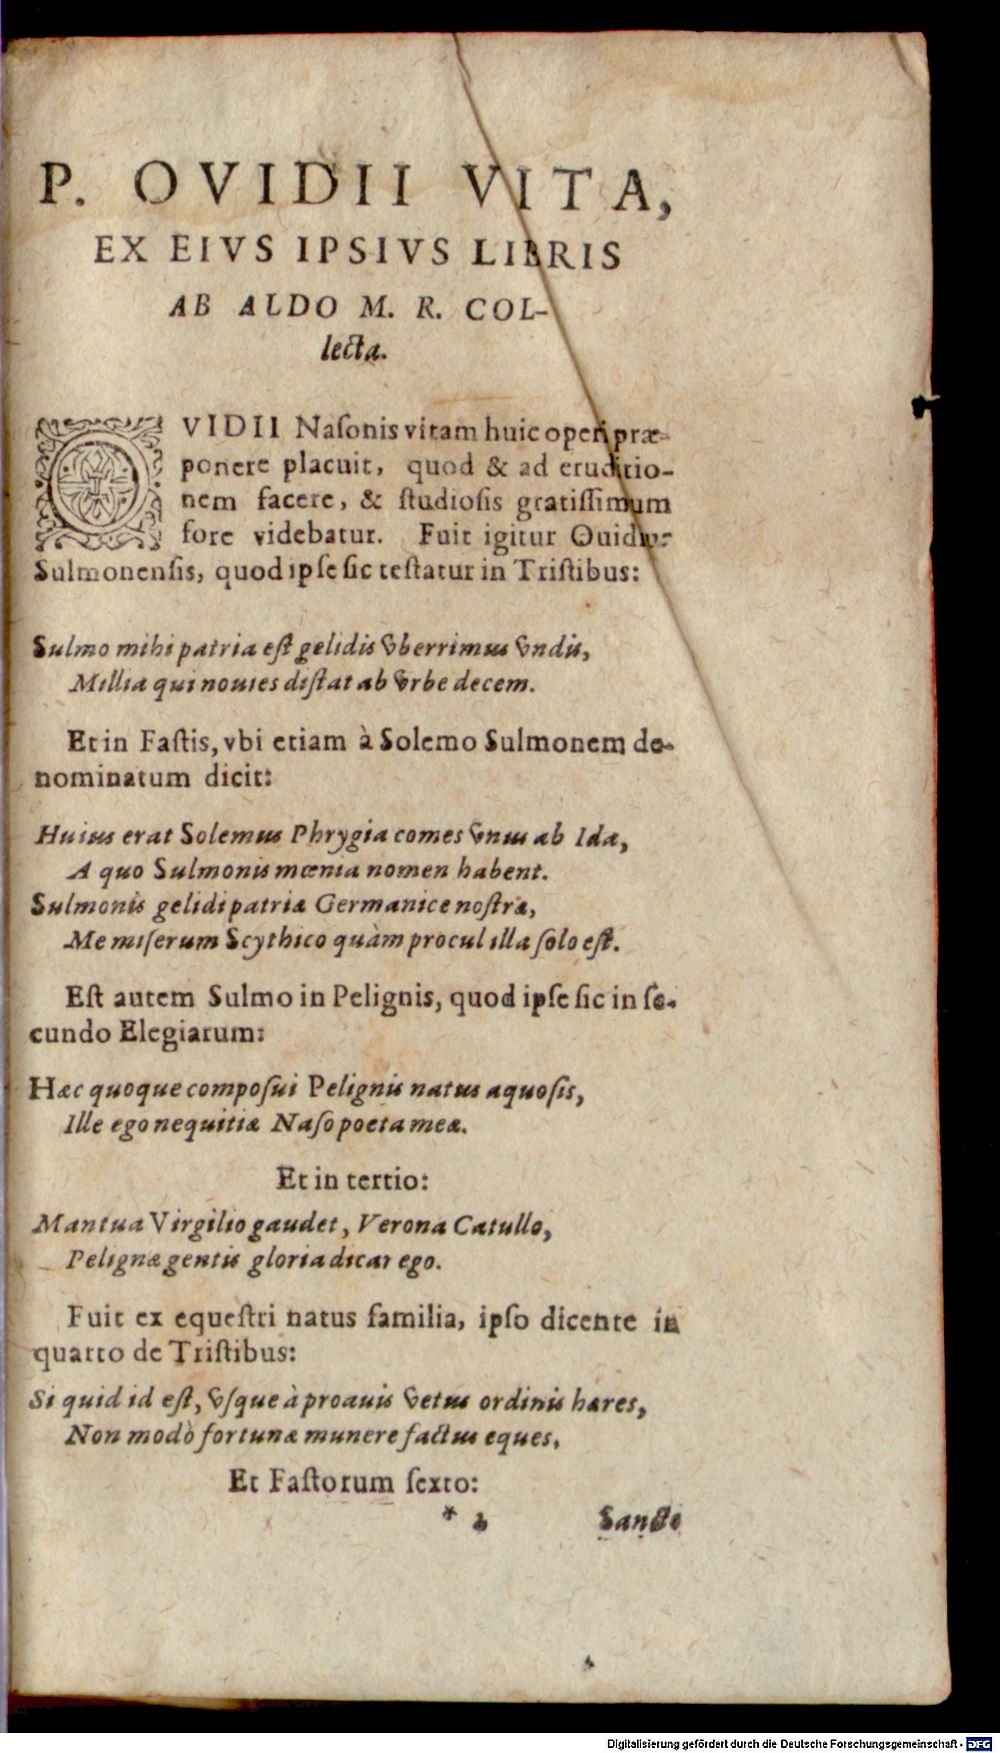 P. OVIDII VITA,
EX EIVS IPSIVS LIBRIS
AB ALDO M. R. COL-
lecta.
OVIDII Naſonis vitam huic operi præ-
ponere placuit, quod & ad eruditio-
nem facere, & ſtudioſis gratiſſimum
fore videbatur. Fuit igitur Ouidius
Sulmonenſis, quod ipſe ſic teſtatur in Triſtibus:
Sulmo mihi patria eſt gelidis vberrimus vndis,
Millia qui nouies diſtat ab vrbe decem.
Et in Faſtis, vbi etiam à Solemo Sulmonem de-
nominatum dicit:
Huius erat Solemus Phrygia comes vnus ab Ida,
A quo Sulmonis mœnia nomen habent.
Sulmonis gelidi patriæ Germanice noſtræ,
Me miſerum Scythico quàm procul illa ſolo eſt.
Eſt autem Sulmo in Pelignis, quod ipſe ſic in ſe-
cundo Elegiarum:
Hæc quoque compoſui Pelignis natus aquoſis,
Ille ego nequitiæ Naſo poeta meæ.
Et in tertio:
Mantua Virgilio gaudet, Verona Catullo,
Pelignæ gentis gloria dicar ego.
Fuit ex equeſtri natus familia, ipſo dicente in
quarto de Triſtibus:
Si quid id eſt, vſque à proauis vetus ordinis hæres,
Non modò fortunæ munere factus eques,
Et Faſtorum ſexto:
* 2 Sancte
Digitalisierung gefördert durch die Deutsche Forschungsgemeinschaft - DFG